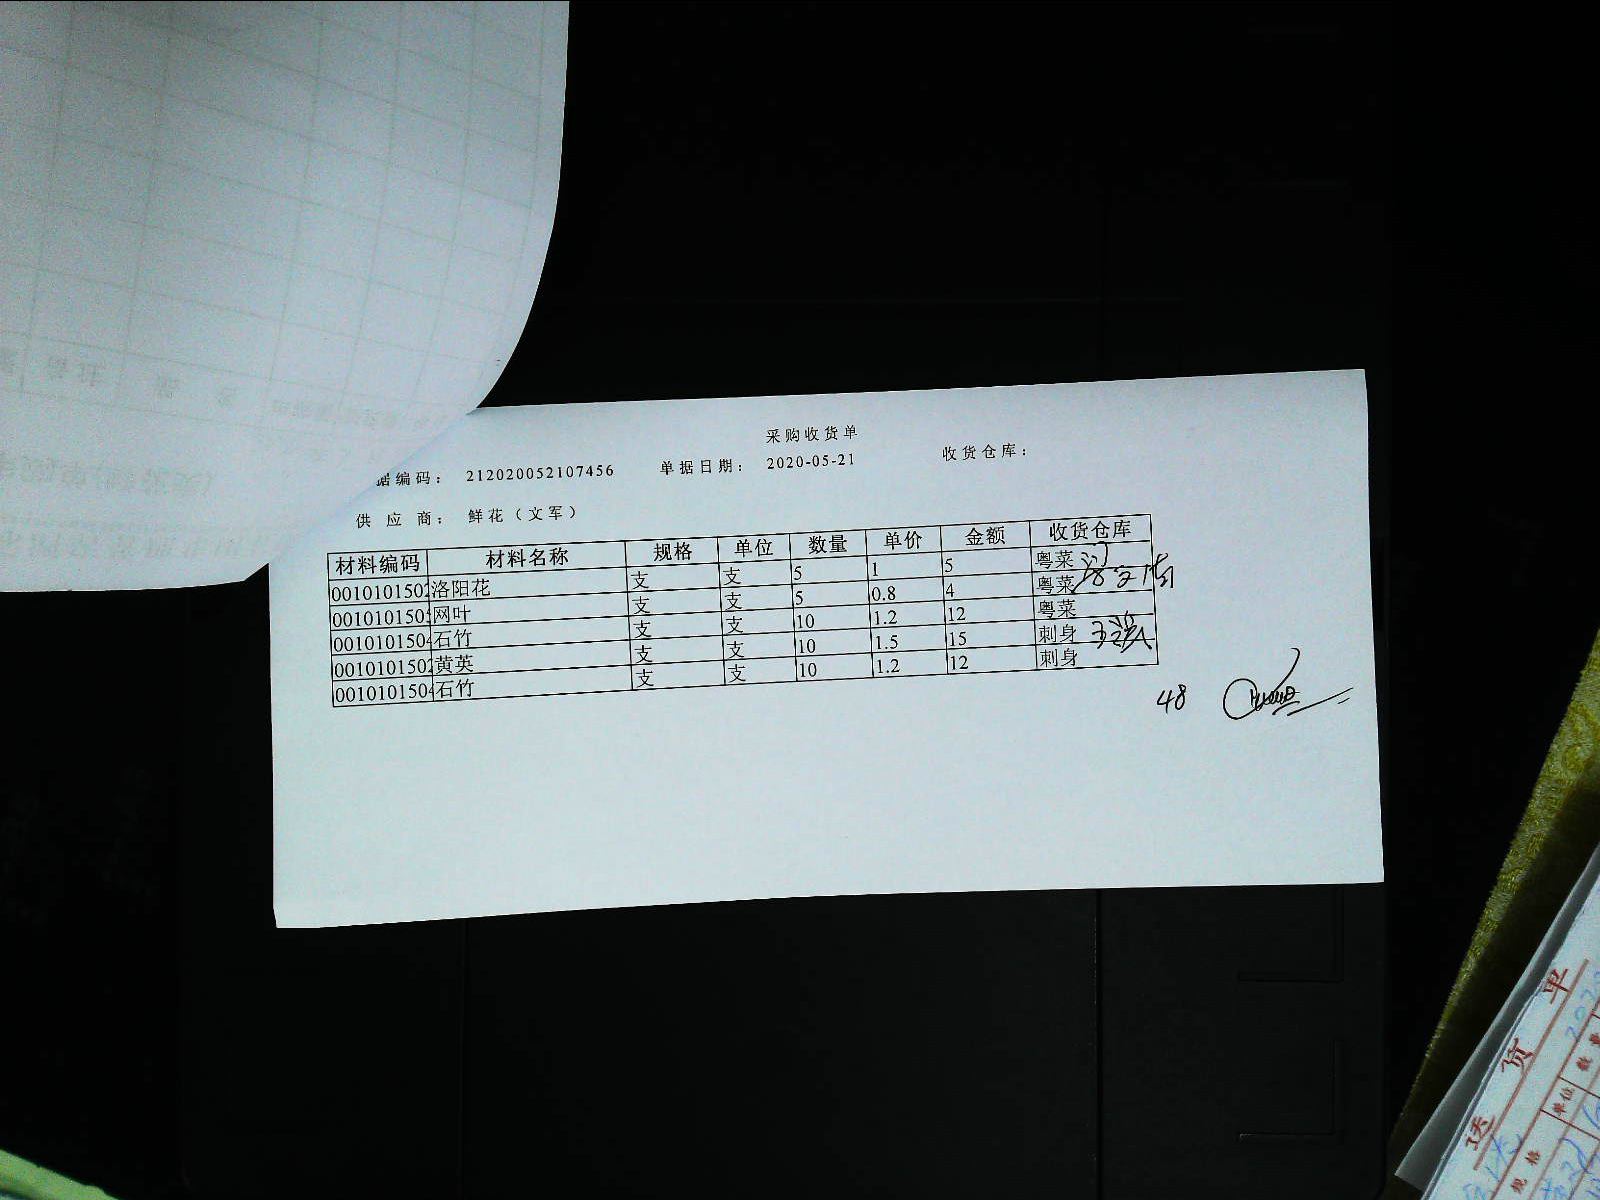 采购收货单
据编码： 212020052107456 单据日期： 2020-05-21 收货仓库：
供应商： 鲜花（文军）
材料编码 材料名称 规格 单位 数量 单价 金额 收货仓库
0010101502 洛阳花 支 支 5 1 5 粤菜
001010150 网叶 支 支 5 0.8 4 粤菜
0010101504 石竹 支 支 10 1.2 12 粤菜
0010101502 黄英 支 支 10 1.5 15 刺身
0010101504 石竹 支 支 10 1.2 12 刺身
48
送货单
规格 单位 数量